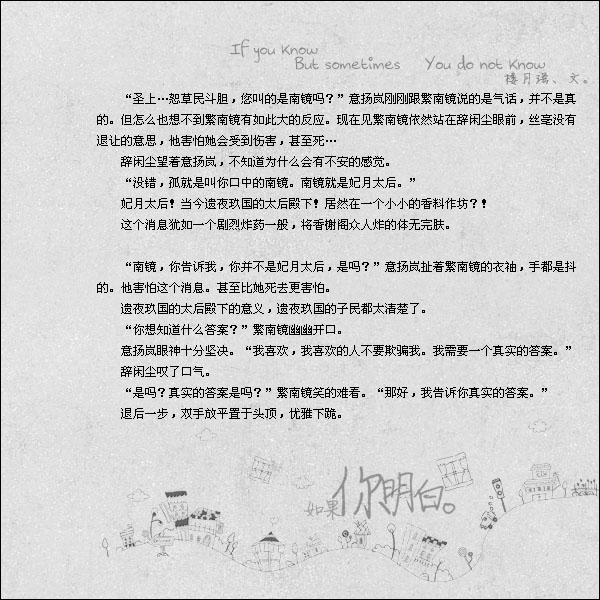 If you Know
But sometimes You do not Know
楼月瑶、文。
“圣上…恕草民斗胆,您叫的是南镜吗?”意扬岚刚刚跟繁南镜说的是气话,并不是真
的。但怎么也想不到繁南镜有如此大的反应。现在见繁南镜依然站在辞闲尘眼前,丝毫没有
退让的意思,他害怕她会受到伤害,甚至死…
辞闲尘望着意扬岚,不知道为什么会有不安的感觉。
“没错,孤就是叫你口中的南镜。南镜就是妃月太后。”
妃月太后!当今遗夜玖国的太后殿下!居然在一个小小的香料作坊?!
这个消息犹如一个剧烈炸药一般,将香榭阁众人炸的体无完肤。
“南镜,你告诉我,你并不是妃月太后,是吗?”意扬岚扯着繁南镜的衣袖,手都是抖
的。他害怕这个消息。甚至比她死去更害怕。
遗夜玖国的太后殿下的意义,遗夜玖国的子民都太清楚了。
“你想知道什么答案?”繁南镜幽幽开口。
意扬岚眼神十分坚决。“我喜欢,我喜欢的人不要欺骗我。我需要一个真实的答案。”
辞闲尘叹了口气。
“是吗?真实的答案是吗?”繁南镜笑的难看。“那好,我告诉你真实的答案。”
退后一步,双手放平置于头顶,优雅下跪。
如果你明白。